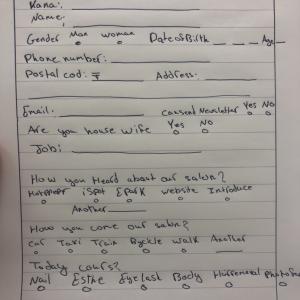 Kana:
Name:
Gender Man woman Date of Birth Age
Phone number:
Postal cod: 〒 Address:
Email: consent Newsletter Yes No
Are you house wife Yes No
Job:
How you Heard about our salon?
Hotpeper iSpot Epark website Introduce
Another
How you come our salon?
car Taxi Train Byckle walk Another
Today cours?
Nail Esthe Eyelast Body Hairremoval Photofacial